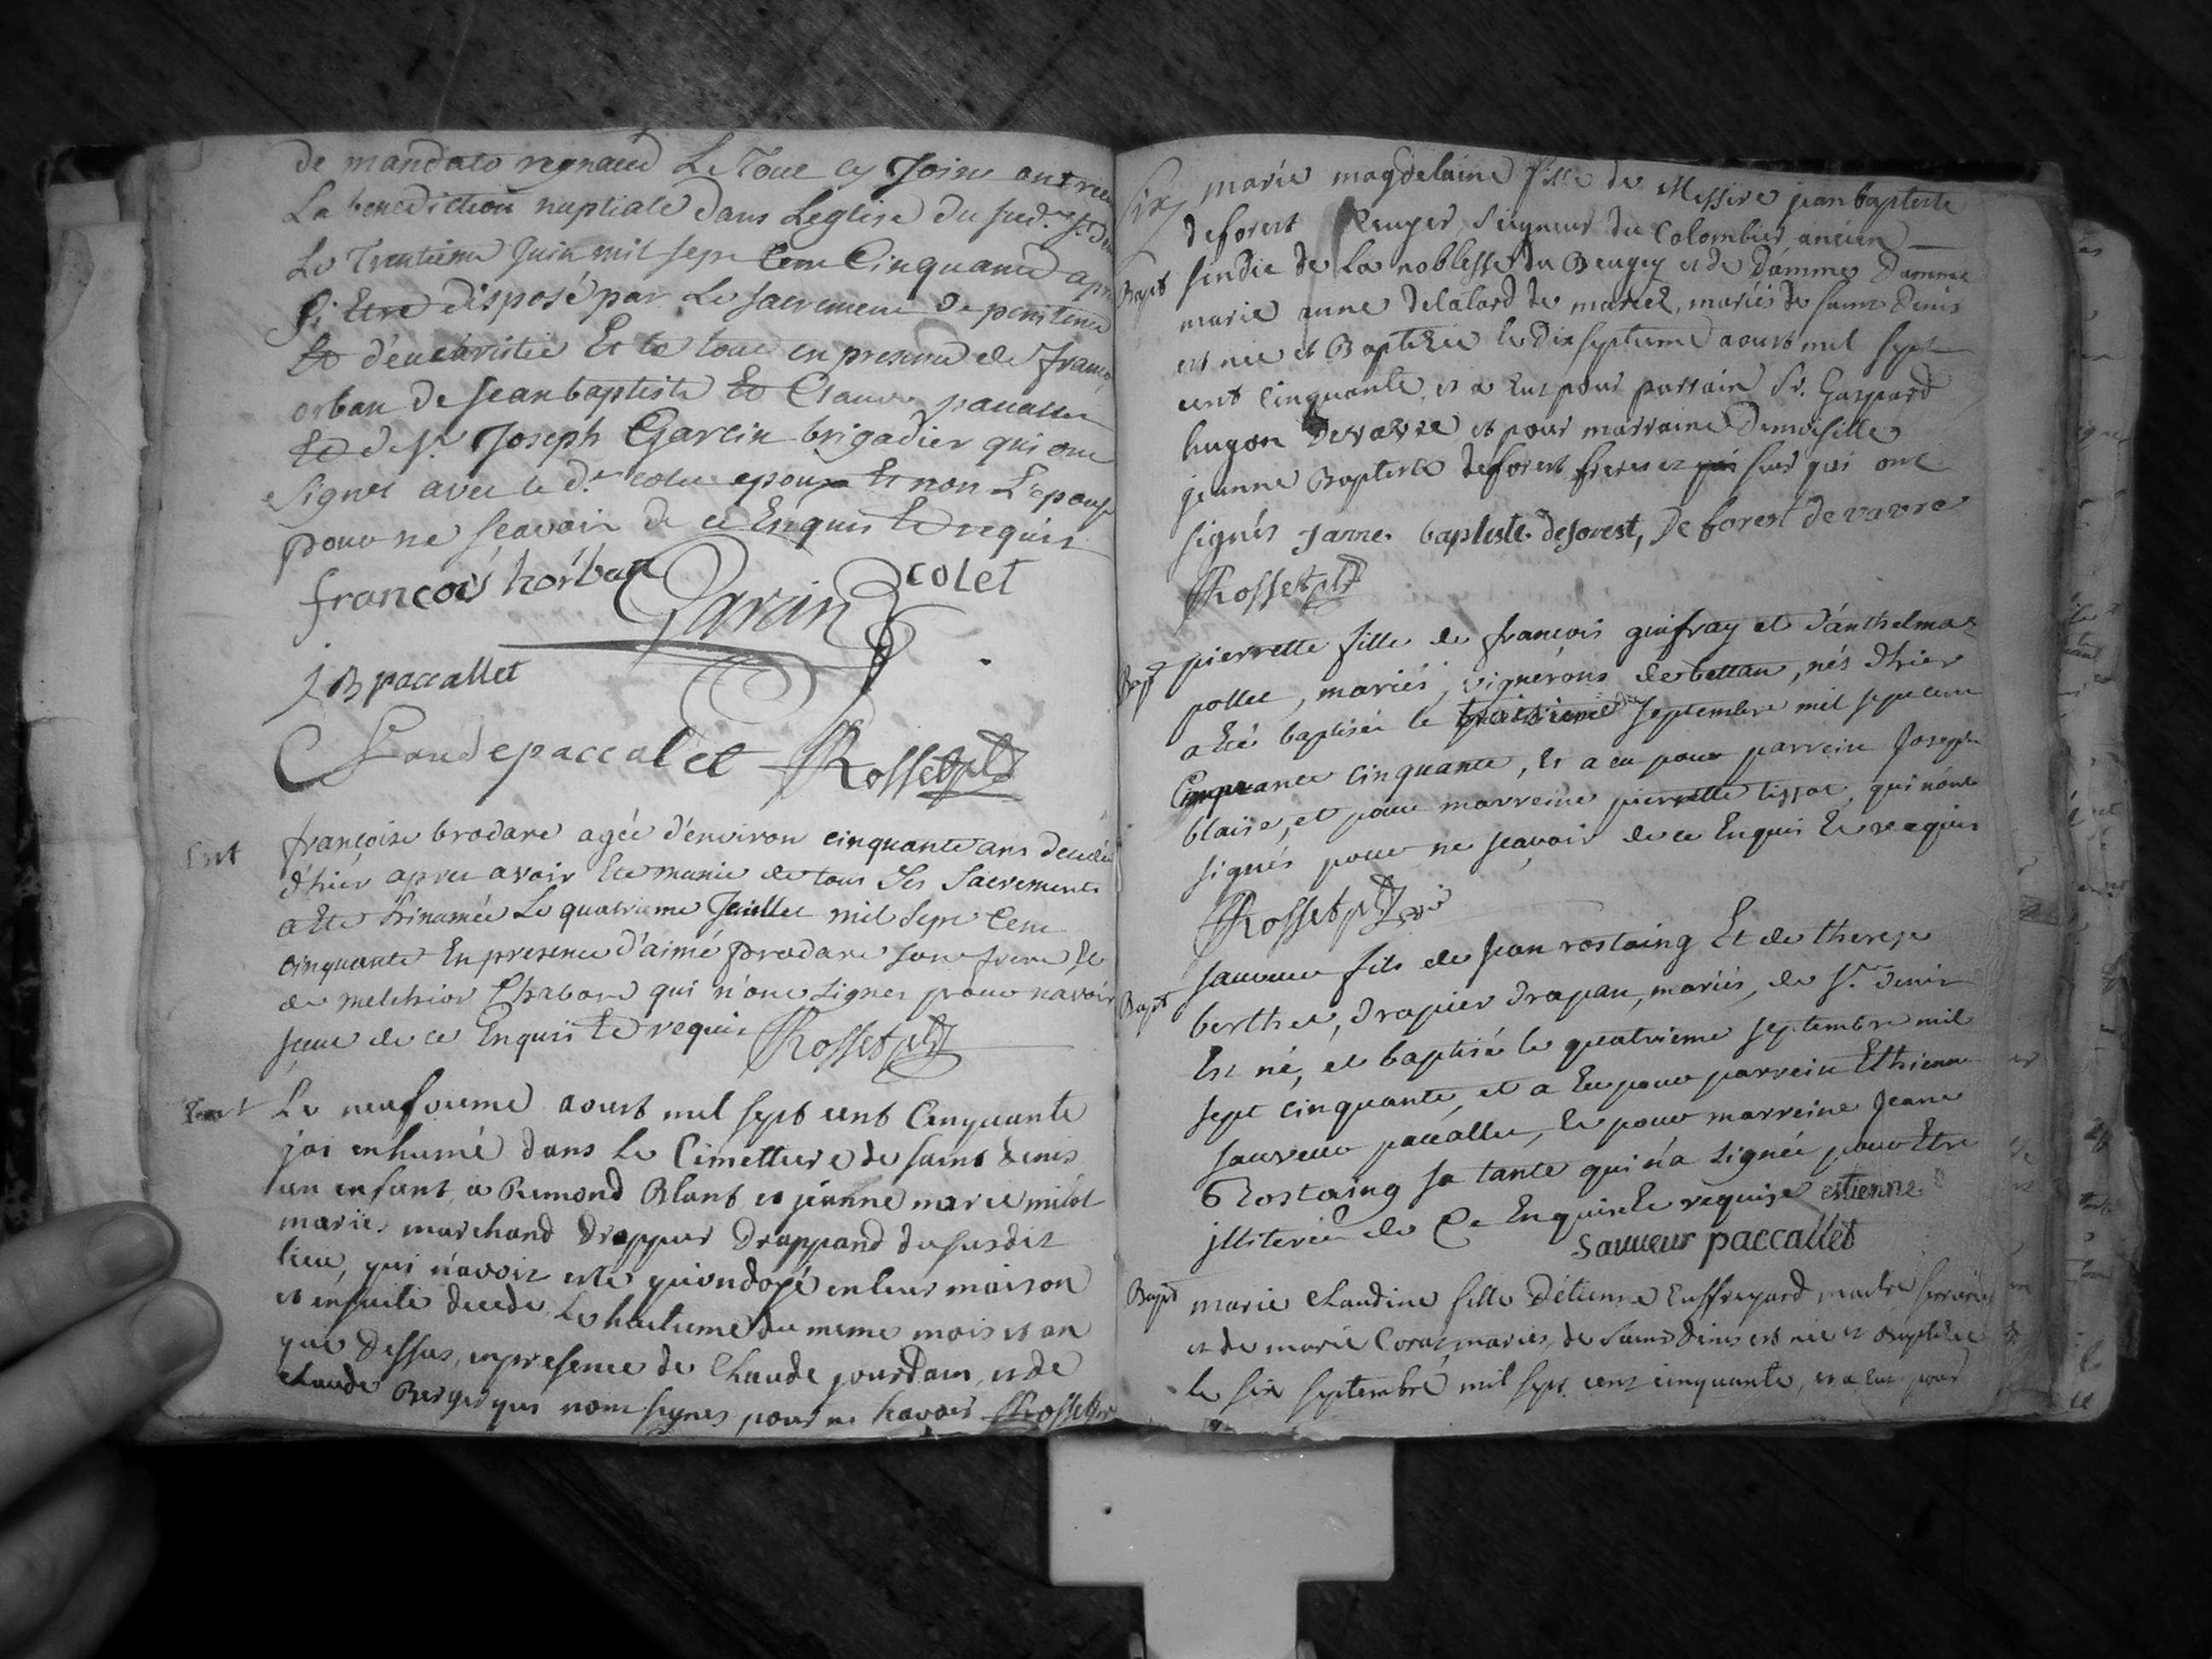 de mandato regnaud Le Tout cy Joint ont recu
La benediction nuptiale dans Leglise du sud. St denis
Le Trentieme Juin mil sept Cent Cinquante apres
si Etre disposé par Le sacrement de penitence
Et d'eucaristie Et le tout en presence de francois
orban de Jean baptiste Et Claude paccallet
Et de Sr. Joseph Garcin brigadier qui ont
signés avec le d. colet epoux Et non L'epouse
pour ne sçavoir de ce Enquis Et requis
françois horban Garcin colet
J B paccallet
Claude paccallet Rosset
Ent françoise brodare agée d'environ cinquante ans decedée
d'hier apres avoir Eté munie de tous Ses Sacrements
a Eté Inhumée Le quatrieme Juillet mil Sept Cent
cinquante En presence d'aimé brodare son frere Et
de melchior Chabord qui n'ont signes pour n'avoir
sceu de ce Enquis Et requis Rosset
Ent Le neufvieme aoust mil sept cent Cinquante
j'ai enhumé dans le Cimettiere de saint denis
un enfant a Rumond Blant et jeanne marie milot
mariés marchand drappier drappand du susdit
lieu, qui n'avoit esté qu'ondoyé en leur maison
et ensuite decedé Le huitieme du meme mois et an
que dessus, en presence de Claude jourdain, et de
claude Berger qui n'ont signés pour ne sçavoir Rosset
marie magdelaine fille de Messire jean baptiste
deforest seigneur du Colombier, ancien
Bapt sindic de la noblesse du Beugey et de Damme Damme
marie anne delatard de mariés de saint denis
est née et Baptisée le dix septieme aoust mil sept
cent Cinquante, et a Eut pour parrain Sr. Gaspard
hugon Devavre et pour marraine Demoiselle
jeanne Baptiste deforest freres et seur qui ont
signés Janne baptiste deforest, De forest de vavre
Rosset
Bapt pierrette fille de francois guifray et d'anthelmaz
pollet, mariés, vignerons de bettan, nés d'hier
a Eté baptisée le troisieme septembre mil sept cent
Cinquante cinquante, Et a eu pour parrein Joseph
blaise, et pour marreine pierrette tissot, qui n'ont
signés pour ne sçavoir de ce Enquis Et requis
Rosset
Bapt sauveur fils de Jean rostaing Et de therese
berthet, drapier drapau, mariés, de St. denis
Est né, et baptisé le quatrieme septembre mil
sept cinquante, et a Eu pour parrein Ethienne
sauveur paccallet, Et pour marreine Jeane
Rostaing sa tante qui n'a signée pour Etre
illiterée de Ce Enquise Et requise estienne
sauveur paccallet
Bapt marie claudine fille d'étienne Euffrayard maitre serrurier
et de marie Coraz, mariés, de Saint Denis est née et Baptisée
le six septembre mil sept cent cinquante, et a Eut pour